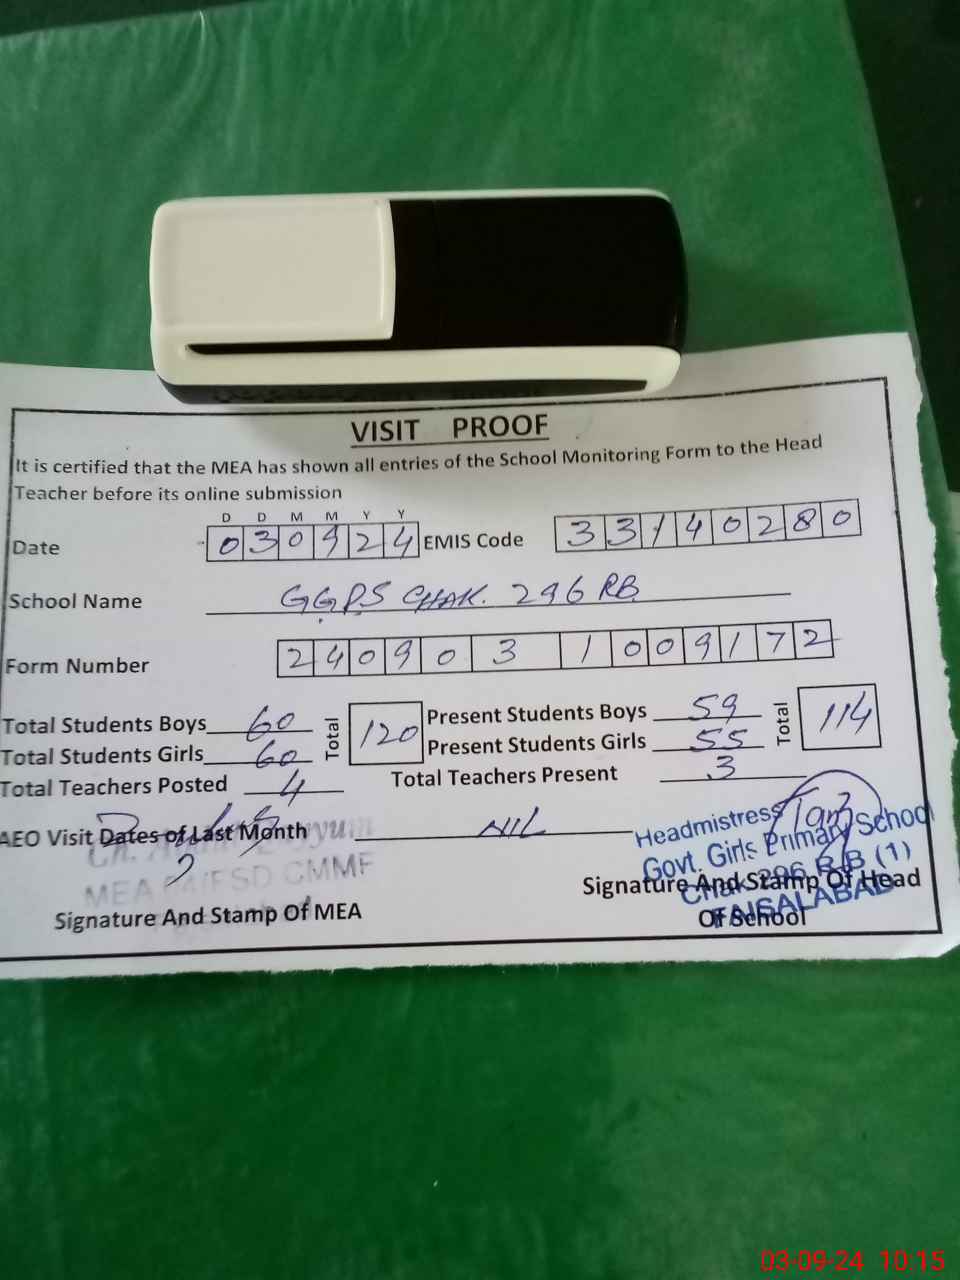 VISIT PROOF
It is certified that the MEA has shown all entries of the School Monitoring Form to the Head
Teacher before its online submission
D D M M Y Y
Date 030924 EMIS Code 33140280
School Name GGPS CHAK. 296 RB
Form Number 2409031009172
Total Students Boys 60 Total 120 Present Students Boys 59 Total 114
Total Students Girls 60 Present Students Girls 55
Total Teachers Posted 4 Total Teachers Present 3
AEO Visit Dates of Last Month NIL
Headmistress
Govt. Girls Primary School
Chak 296 R.B (1)
FAISALABAD
MEA FSD CMMF
Signature And Stamp Of MEA
Signature And Stamp Of Head
Of School
03-09-24 10:15